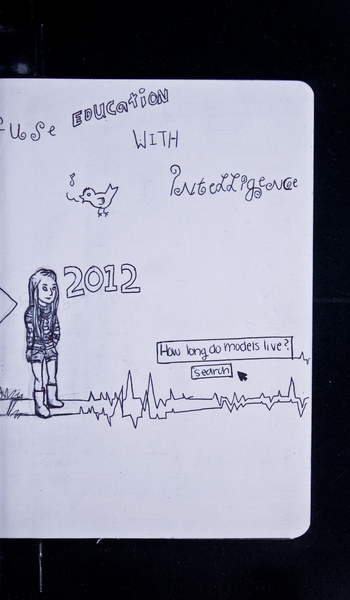 fuse EDUCATION
WITH
INtelligence
2012
How long do models live?
search